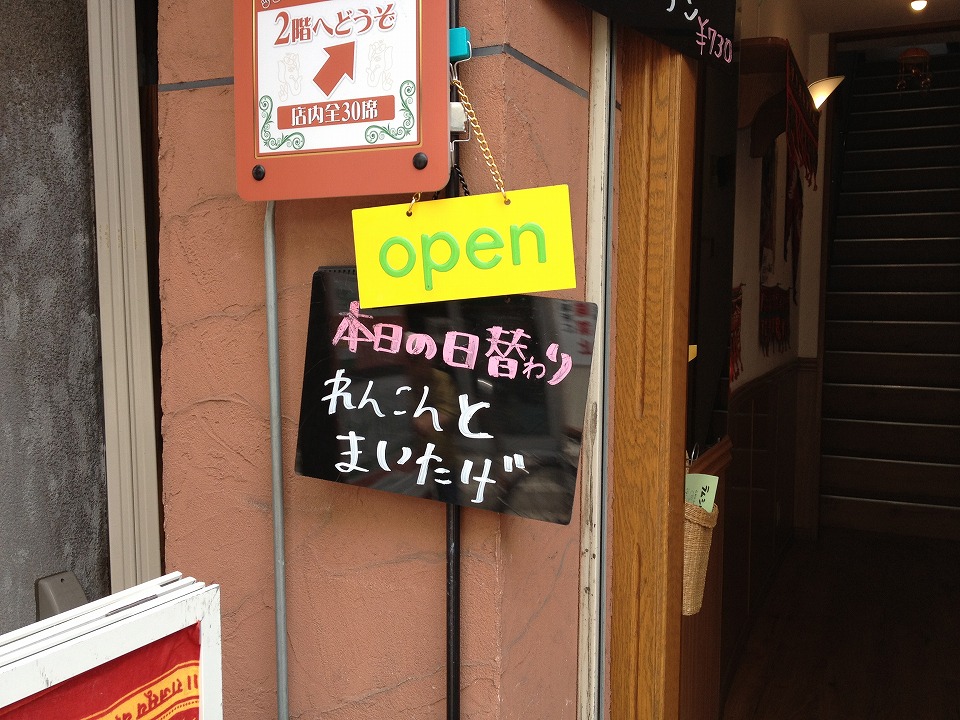 2階へどうぞ
店内全30席
¥730
open
本日の日替わり
れんこんと
まいたけ゛